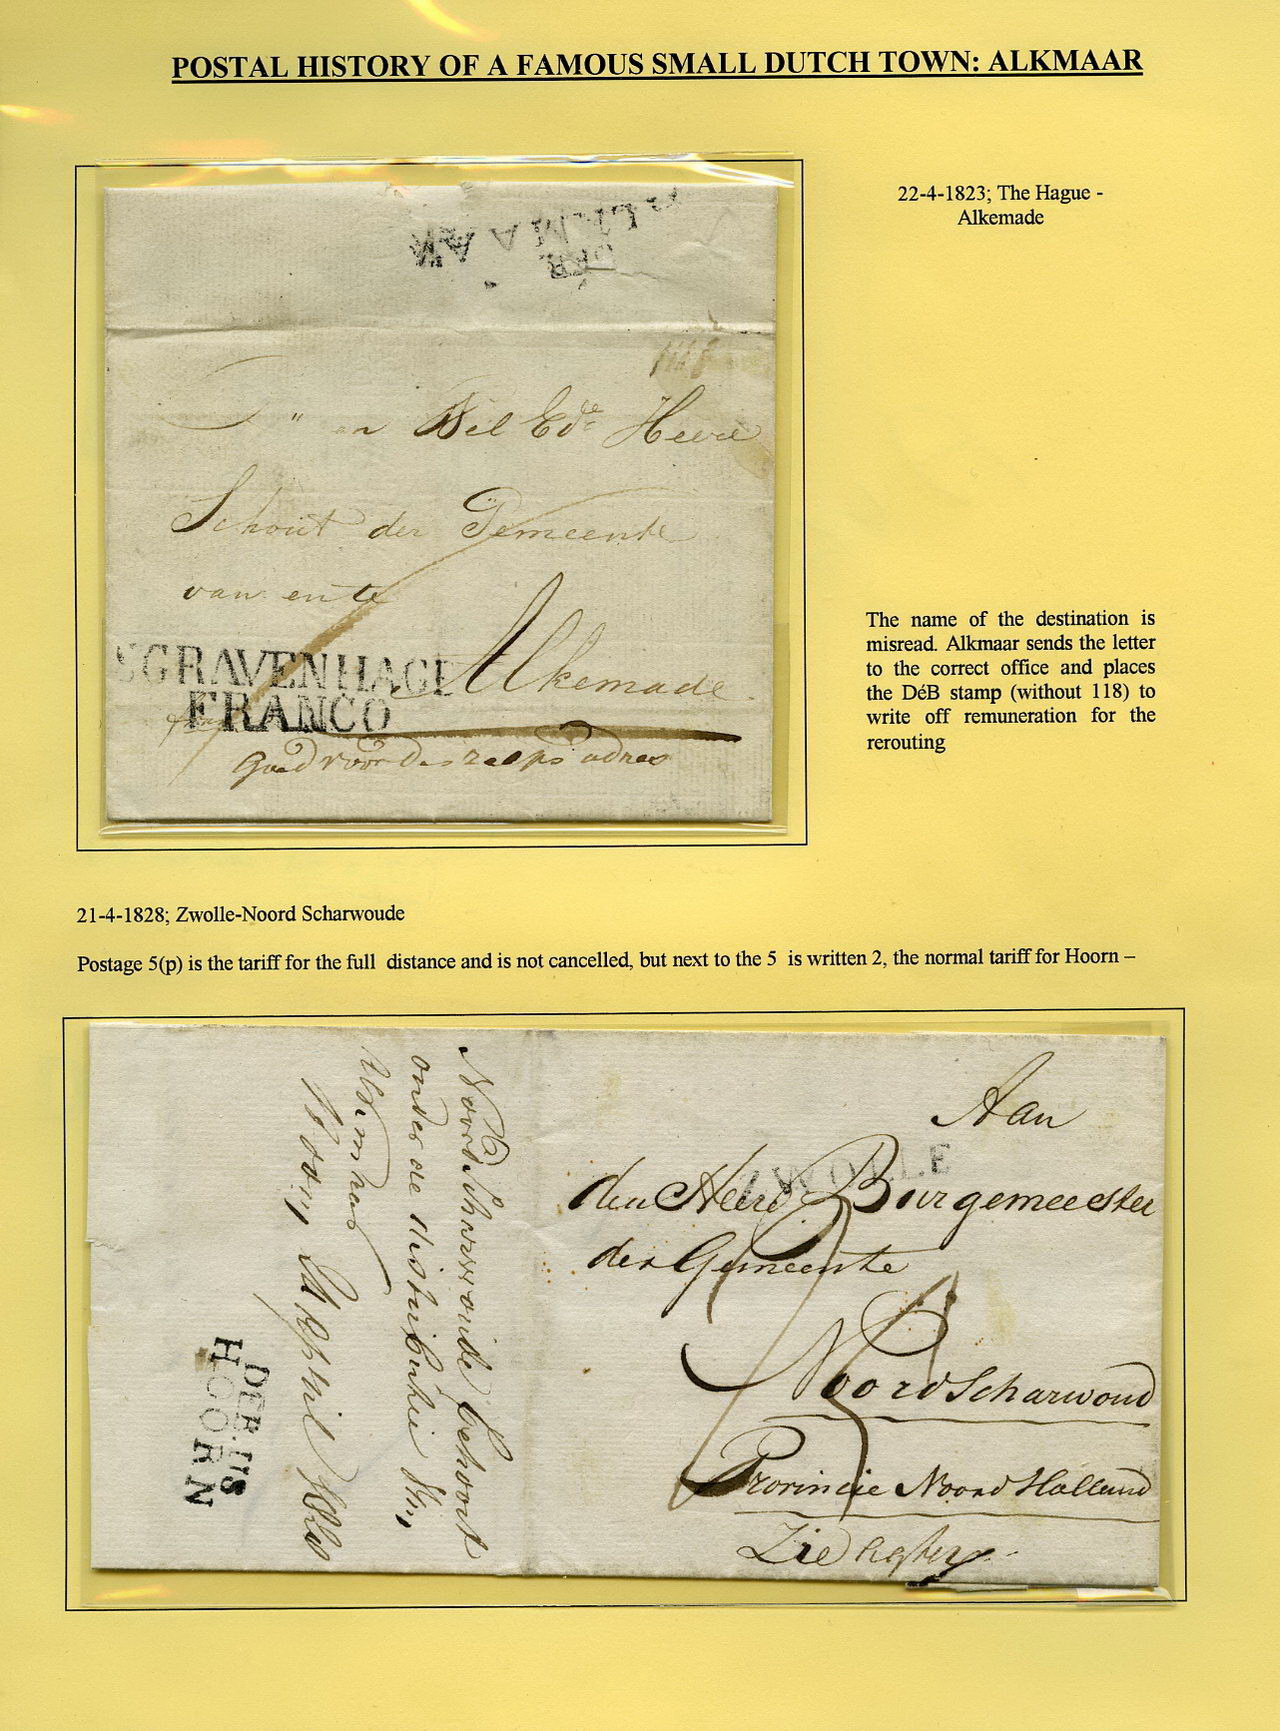 POSTAL HISTORY OF A FAMOUS SMALL DUTCH TOWN: ALKMAAR
22-4-1823; The Hague -
Alkemade
Wel Ede Heere
Schout der Gemeente
van en te
Alkemade
SGRAVENHAGE
FRANCO
goed voor des
adres
The name of the destination is
misread. Alkmaar sends the letter
to the correct office and places
the DéB stamp (without 118) to
write off remuneration for the
rerouting
21-4-1828; Zwolle-Noord Scharwoude
Postage 5(p) is the tariff for the full distance and is not cancelled, but next to the 5 is written 2, the normal tariff for Hoorn –
Aan
ZWOLLE
den Heere Burgemeester
der Gemeente
Noord Scharwoud
Provincie Noord Holland
Zie
Noord Scharwoude behoort
onder de distributie
Alkmaar
Hoorn April
DEBUS
HOORN